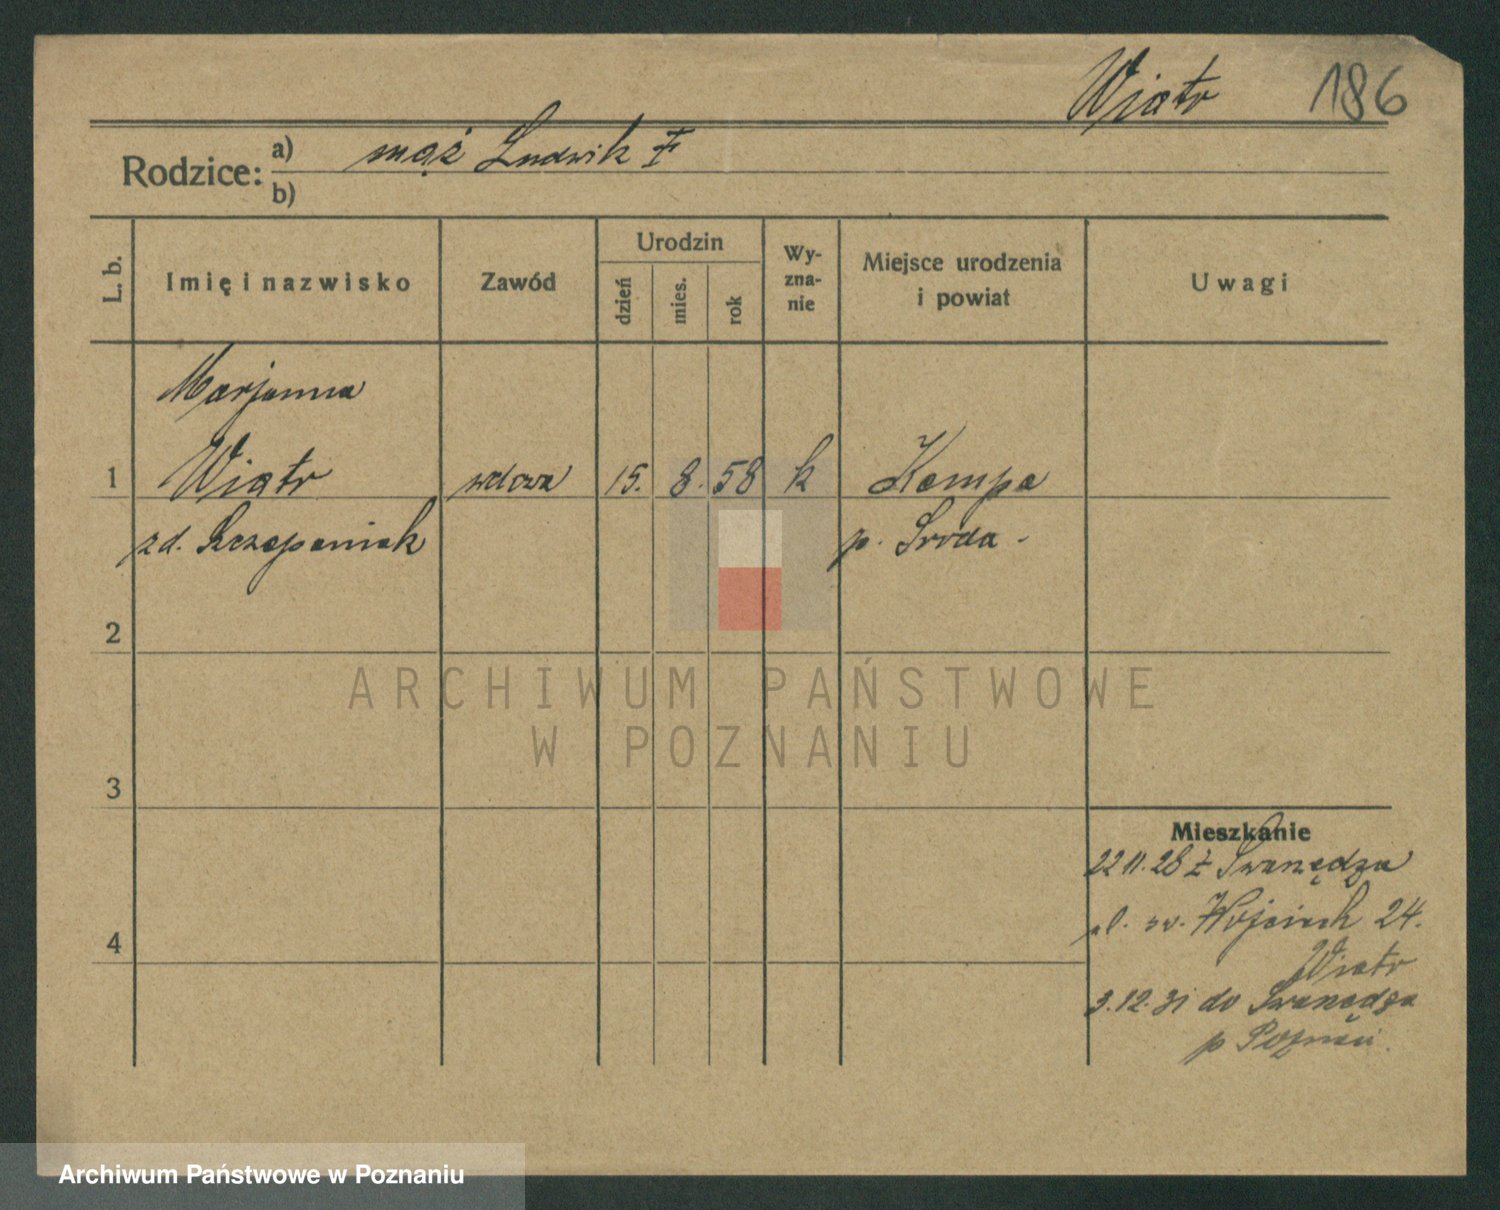 Wiatr 186
Rodzice: a) mąż Ludwik F
b)
L. b. Imię i nazwisko Zawód Urodzin dzień mies. rok Wy-zna-nie Miejsce urodzenia i powiat Uwagi
Marjanna
1 Wiatr wdowa 15. 8. 58 k Kempa
zd. Szczepaniak p. Sroda -
2
ARCHIWUM PAŃSTWOWE
W POZNANIU
3
Mieszkanie
22.11.28 z Swarzędza
ul. św. Wojciech 24.
4 Wiatr
3.12.31 do Swarzędza
p Poznań.
Archiwum Państwowe w Poznaniu